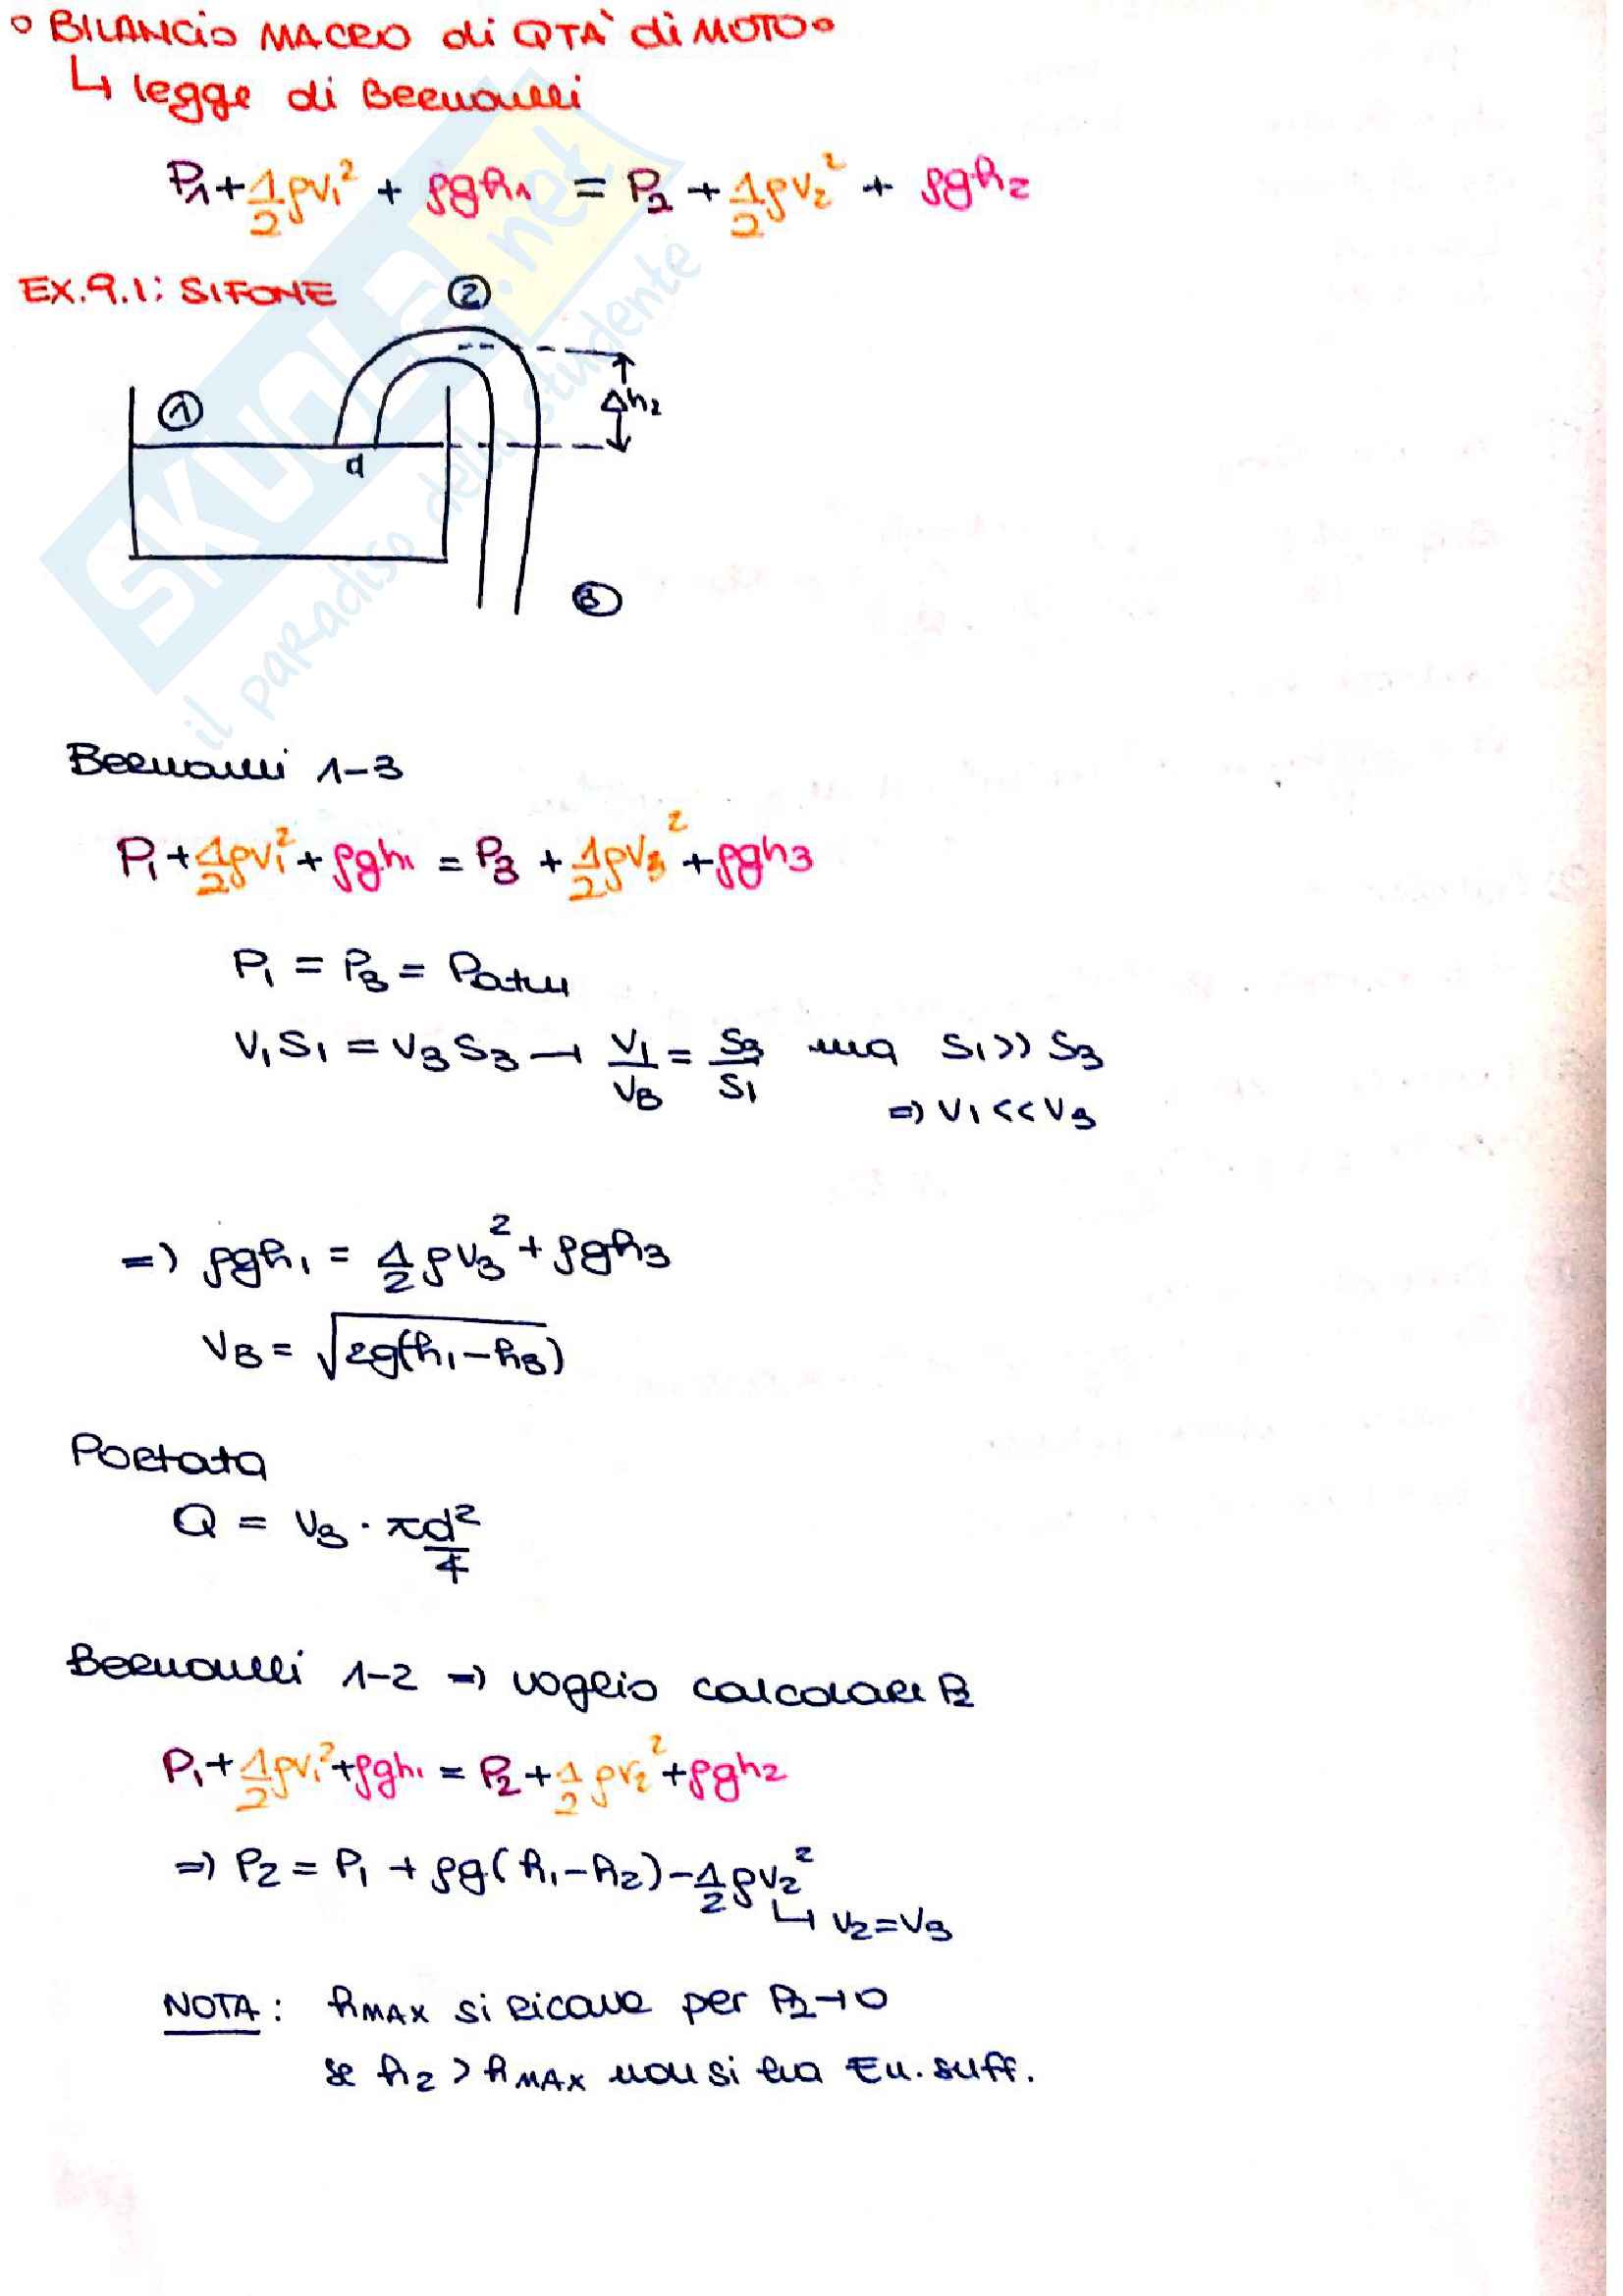 ° BILANCIO MACRO di QTA' di MOTO °
↳ legge di Bernoulli
P₁ + 1/2 ρv₁² + ρgh₁ = P₂ + 1/2 ρv₂² + ρgh₂
EX.9.1: SIFONE
②
①
Δh₂
d
③
SKUOLA.net
il paradiso dello studente
Bernoulli 1-3
P₁ + 1/2 ρv₁² + ρgh₁ = P₃ + 1/2 ρv₃² + ρgh₃
P₁ = P₃ = Patm
V₁S₁ = V₃S₃ → V₁/V₃ = S₃/S₁ ma S₁ >> S₃
⇒ V₁ << V₃
⇒ ρgh₁ = 1/2 ρv₃² + ρgh₃
V₃ = √2g(h₁-h₃)
Portata
Q = V₃ · πd²/4
Bernoulli 1-2 ⇒ voglio calcolare P₂
P₁ + 1/2 ρv₁² + ρgh₁ = P₂ + 1/2 ρv₂² + ρgh₂
⇒ P₂ = P₁ + ρg(h₁-h₂) - 1/2 ρv₂²
↳ V₂ = V₃
NOTA: hMAX si ricava per P₂→0
se h₂ > hMAX non si ha En. suff.